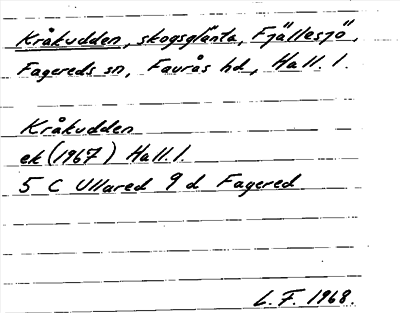 Kråkudden, skogsglänta, Fjällesjö,
Fagereds sn, Faurås hd, Hall. l.
Kråkudden
ek (1967) Hall. l.
5 C Ullared 9 d Fagered
L. F. 1968.